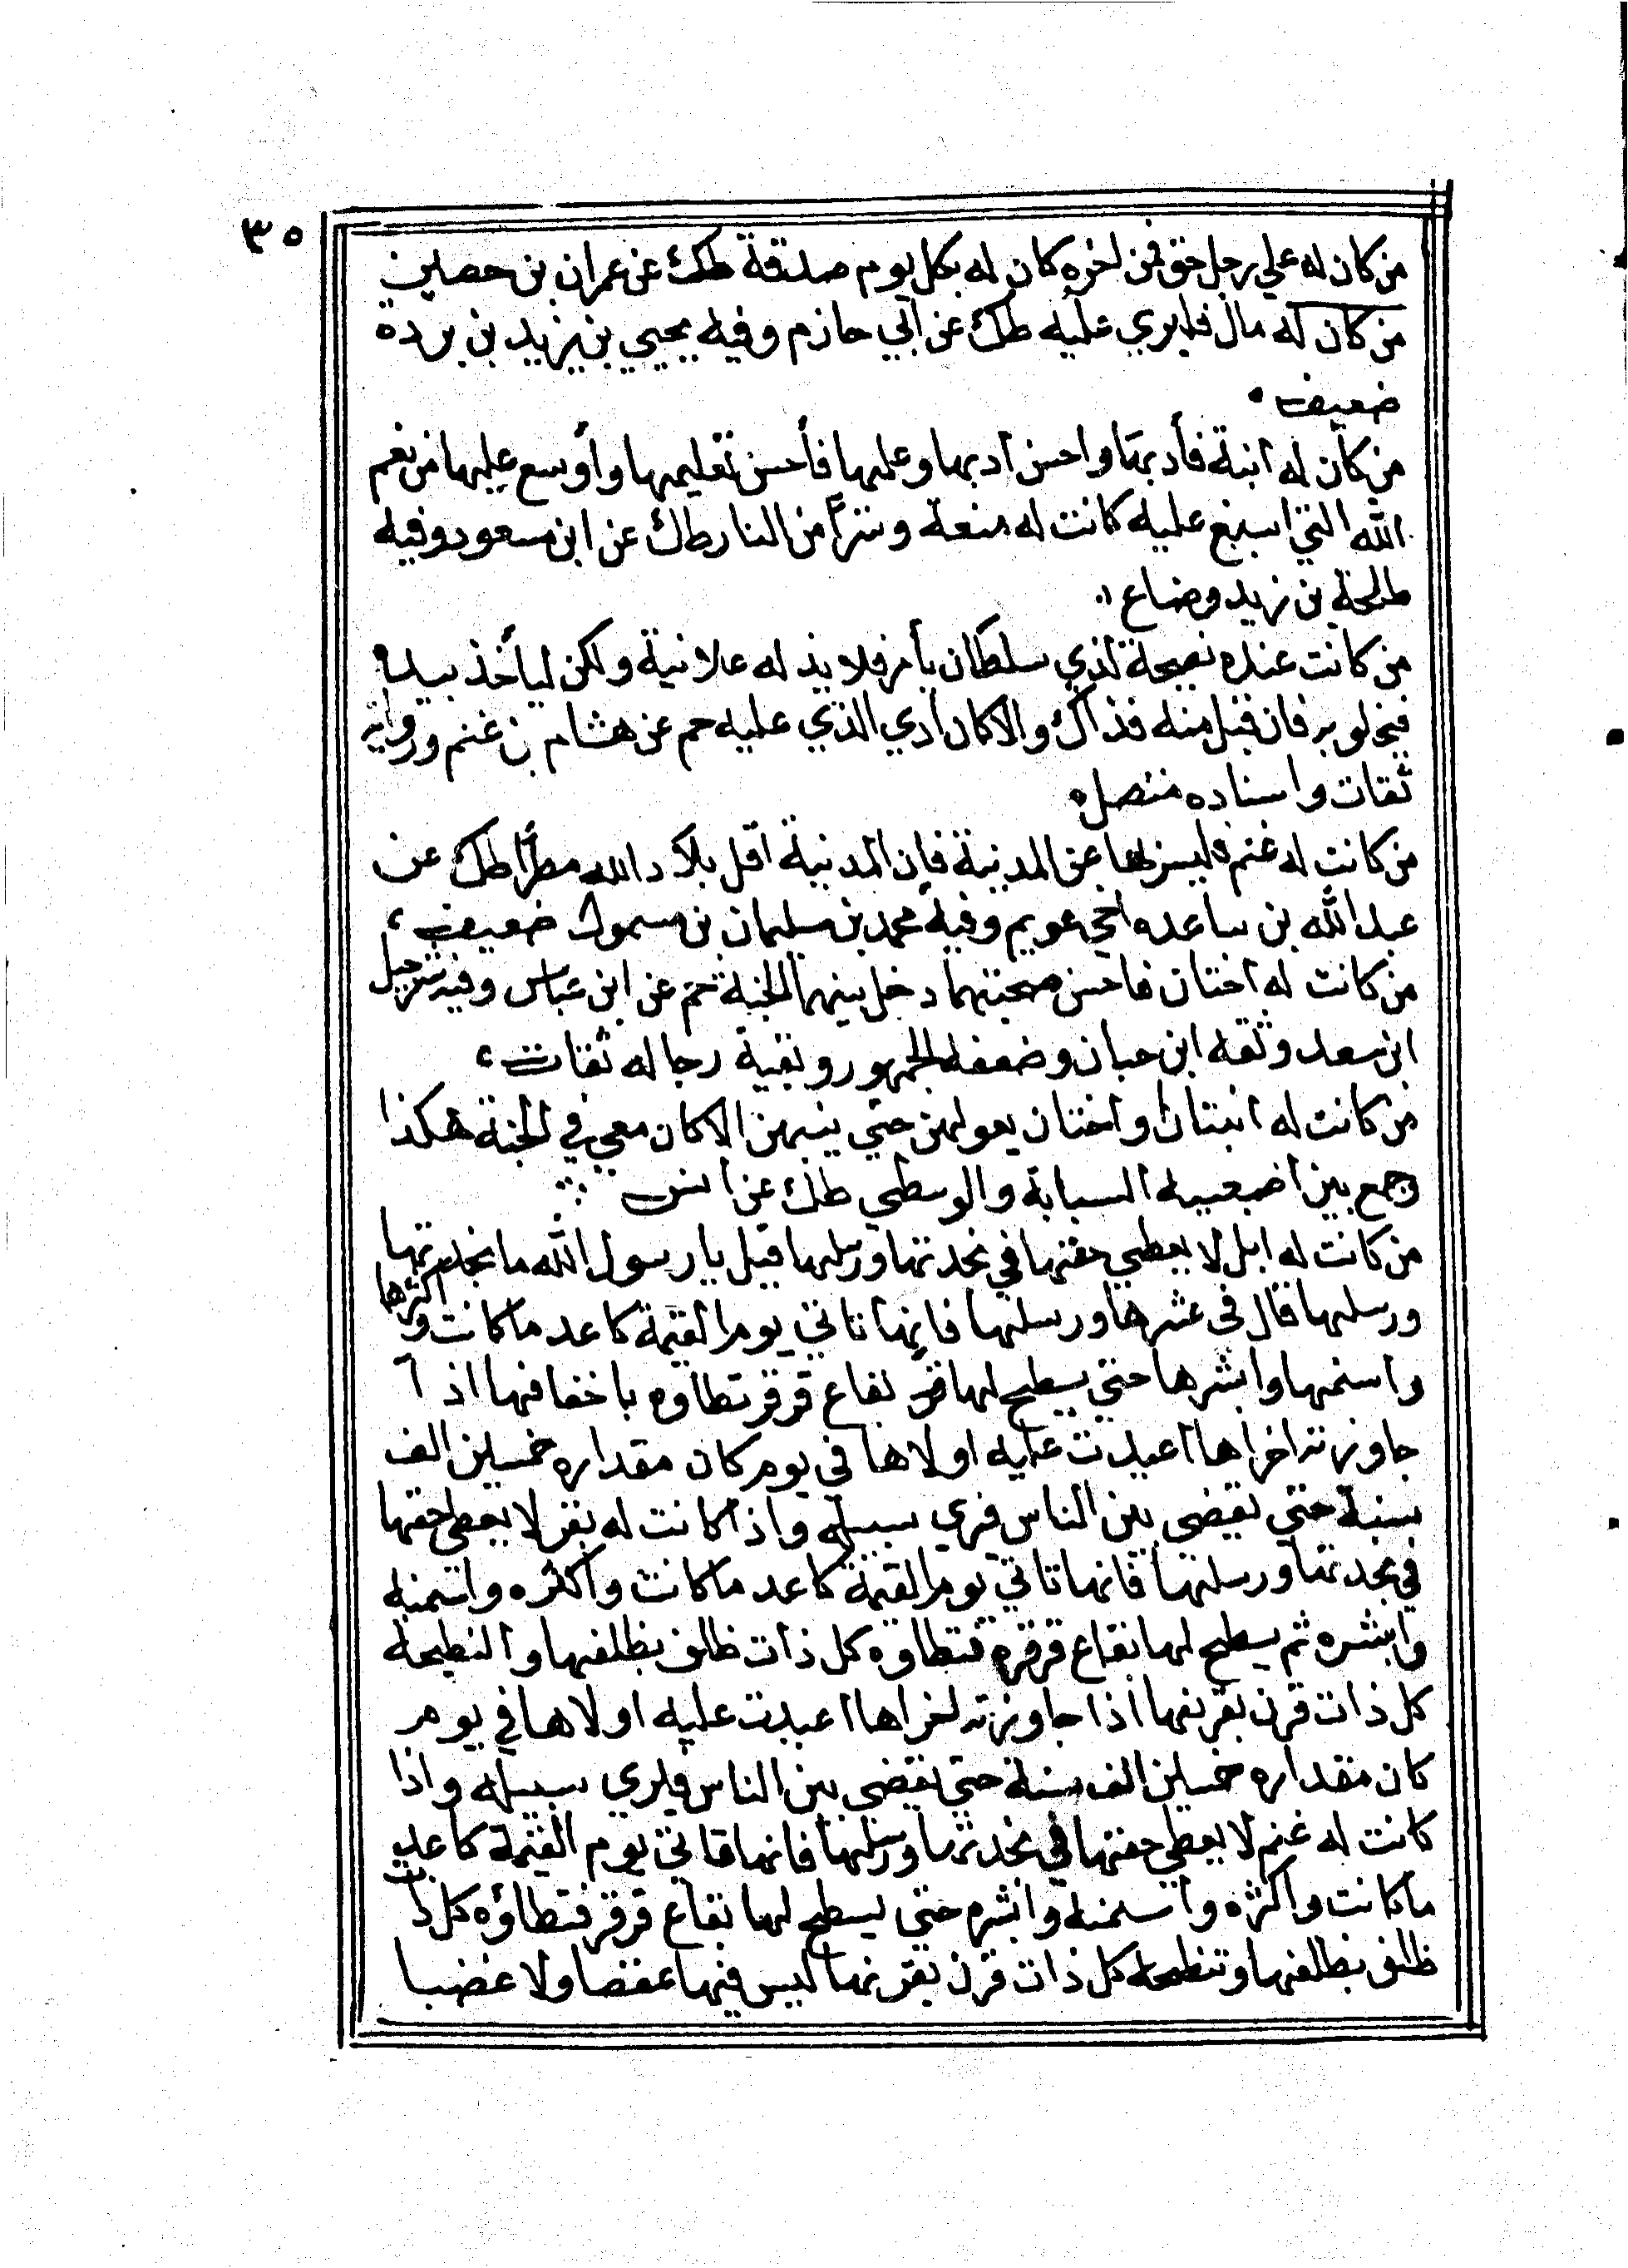 ٣٥
من كان له علي رجل حق فمن اخره كان له بكل يوم صدقة طك عن عمران بن حصين
من كان له مال فليري عليه طك عن ابي حازم وفيه يحيي بن يزيد بن بردة
ضعيف
من كان له ابنة فأدبها واحسن ادبها وعلمها فأحسن تعليمها وأوسع عليها من نعم
الله التي اسبغ عليه كانت له منعة وسترا من النار طك عن ابن مسعود وفيه
طلحة بن زيد وضاع
من كانت عنده نصيحة لذي سلطان بأمر فلا يبد له علانية ولكن ليأخذ بيده
فيخلو به فان قبل منه فذاك والا كان ادي الذي عليه حم عن هشام بن غنم ورواته
ثقات واسناده متصل
من كانت له غنم فليسر بها عن المدينة فإن المدينة اقل بلاد الله مطرا طك عن
عبد الله بن ساعده اخي عويم وفيه محمد بن سليمان بن سموك ضعيف
من كانت له اختان فاحسن صحبتهما دخل بينهما الجنة حم عن ابن عباس وفيه شرحبيل
ابن سعد وثقه ابن حبان وضعفه الجمهور وبقية رجاله ثقات
من كانت له ابنتان واختان يعولهن حتي يبهن الا كان معي في الجنة هكذا
وجمع بين اصبعيه السبابة والوسطي طك عن انس
من كانت له ابل لا يعطي حقها في نجدتها ورسلها قيل يا رسول الله ما نجدتها
ورسلها قال في عشرها ورسلها فإنها تاتي يوم القيمة كاعد ما كانت واكثرها
واسمنها وابشرها حتي يسطح لها بقاع قرقر تطاوه باخفافها اذا
جاوزته اخراها اعيدت عليه اولاها في يوم كان مقداره خمسين الف
سنة حتي يقضي بين الناس فيري سبيله واذا كانت له بقر لا يعطي حقها
في نجدتها ورسلتها فانها تاتي يوم القيمة كاعد ما كانت واكثره واسمنه
وابشره ثم يسطح لها بقاع قرقرة فتطاوه كل ذات ظلف بظلفها والنطيحة
كل ذات قرن بقرنها اذا جاوزته اخراها اعيدت عليه اولاها في يوم
كان مقداره خمسين الف سنة حتي يقضي بين الناس فيري سبيله واذا
كانت له غنم لا يعطي حقها في نجدتها ورسلها فانها تاتي يوم القيمة كاعد
ما كانت واكثره واسمنه وابشره حتي يسطح لها بقاع قرقر فتطاؤه كل ذات
ظلف بظلفها وتنطحه كل ذات قرن بقرنها ليس فيها عقصا ولا عضبا